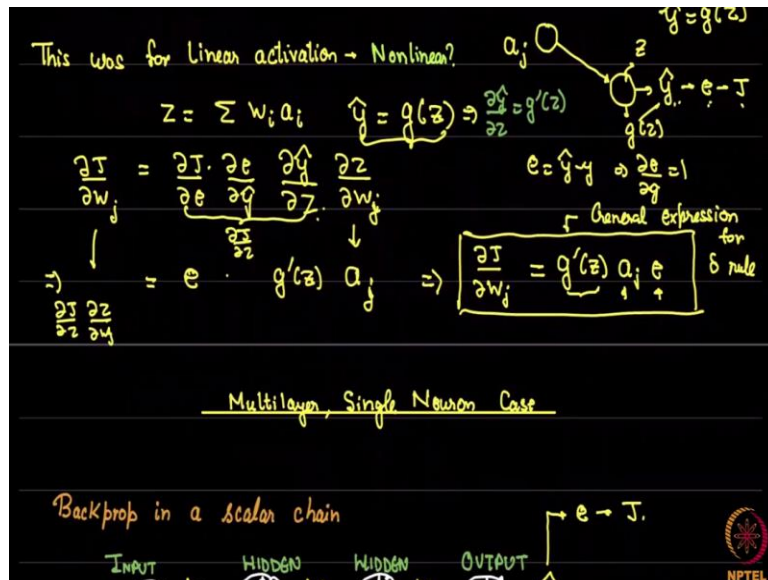 ŷ = g(z)
This was for linear activation → Nonlinear?
a_j
z
z = Σ w_i a_i ŷ = g(z) ⇒ ∂ŷ/∂z = g'(z)
ŷ → e → J
g(z)
∂J/∂w_j = ∂J/∂e · ∂e/∂ŷ ∂ŷ/∂z ∂z/∂w_j
e = ŷ-y ⇒ ∂e/∂ŷ = 1
∂J/∂z
General expression for δ rule
⇒ ∂J/∂z ∂z/∂w_j = e · g'(z) a_j ⇒ ∂J/∂w_j = g'(z) a_j e
Multilayer, Single Neuron Case
Backprop in a scalar chain
→ e → J.
INPUT HIDDEN HIDDEN OUTPUT
NPTEL